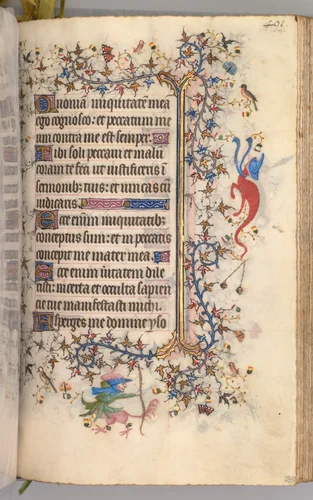 Quoniā iniquitatē meā
ego cognosco: et peccatum me
um contra me est semper.
Tibi soli peccaui et malū
coram te feci ut iustificeris ī
sermonib; tuis: et uincas cū
iudicaris.
Ecce enim iniquitatib;
conceptus sum: et in peccatis
concepit me mater mea.
Ecce enim ūitatem dile
xisti: incerta et occulta sapien
cie tue manifestasti michi.
Asperges me domine yso